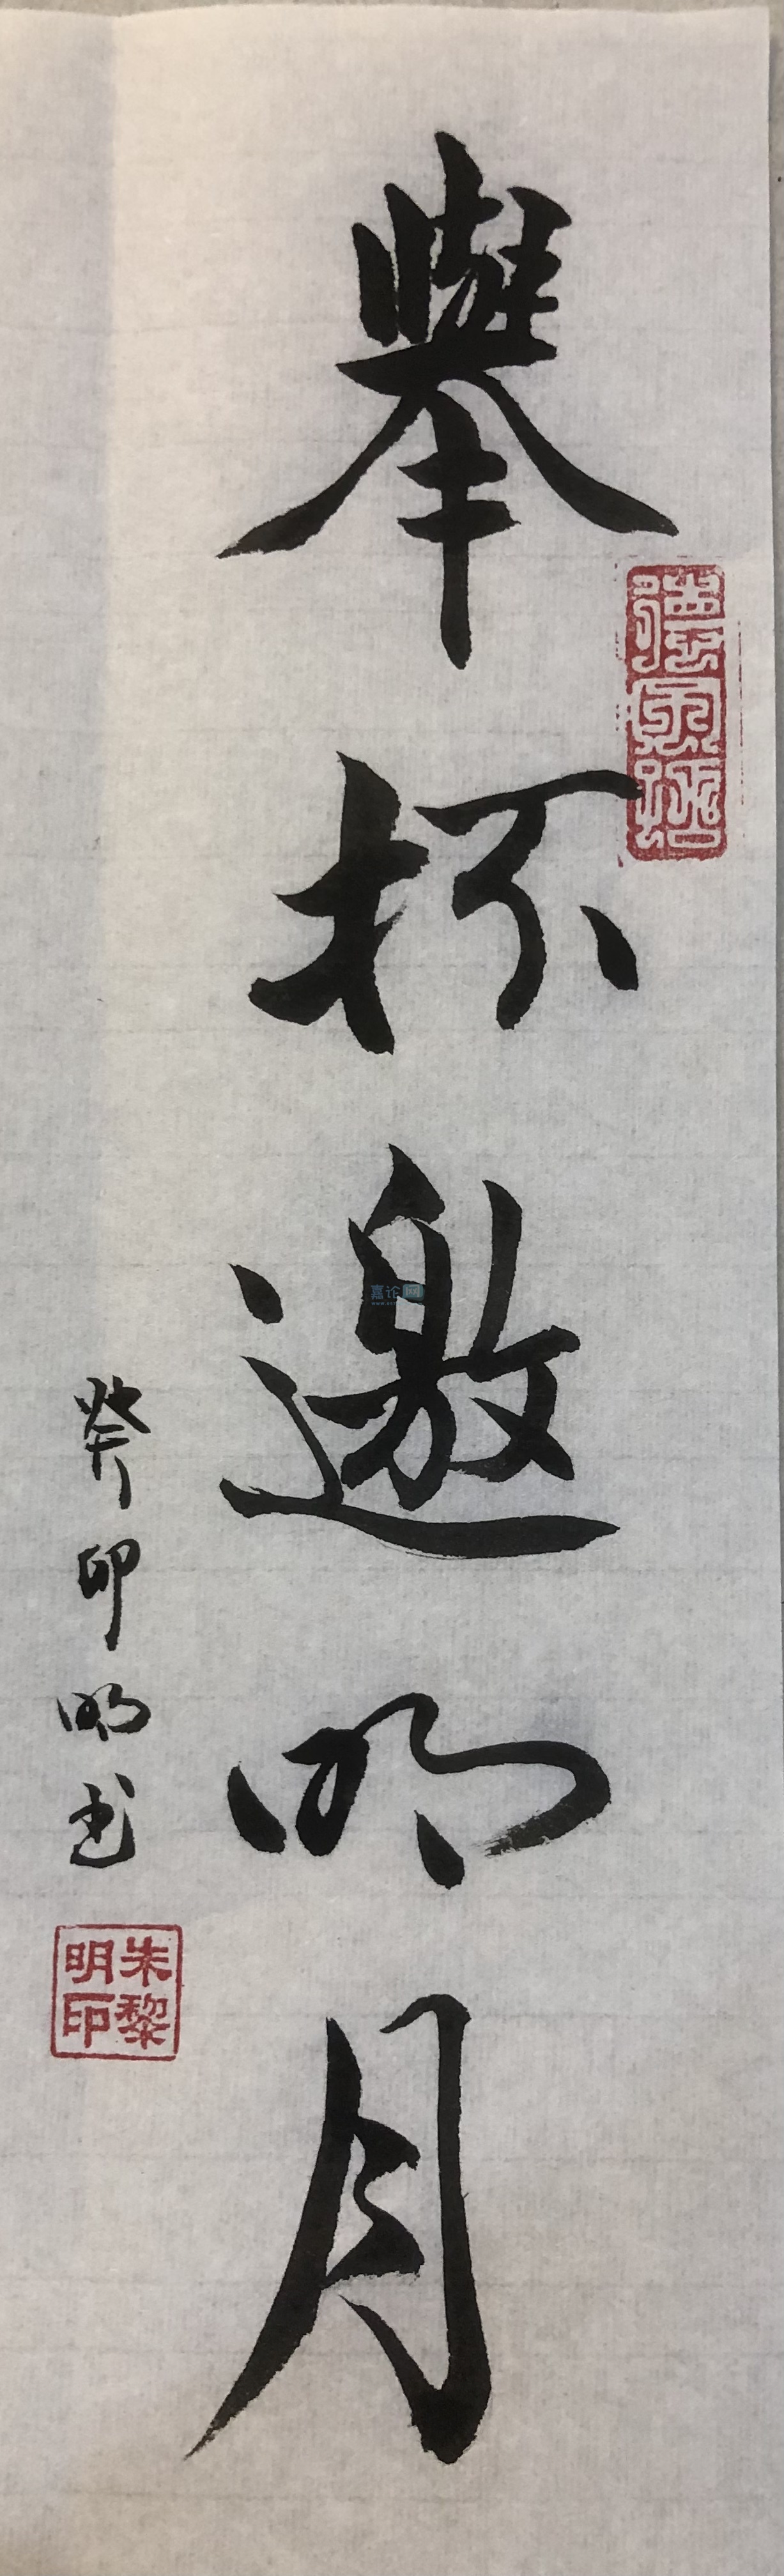 舉杯邀明月
癸卯明书
朱黎
明印
嘉论网